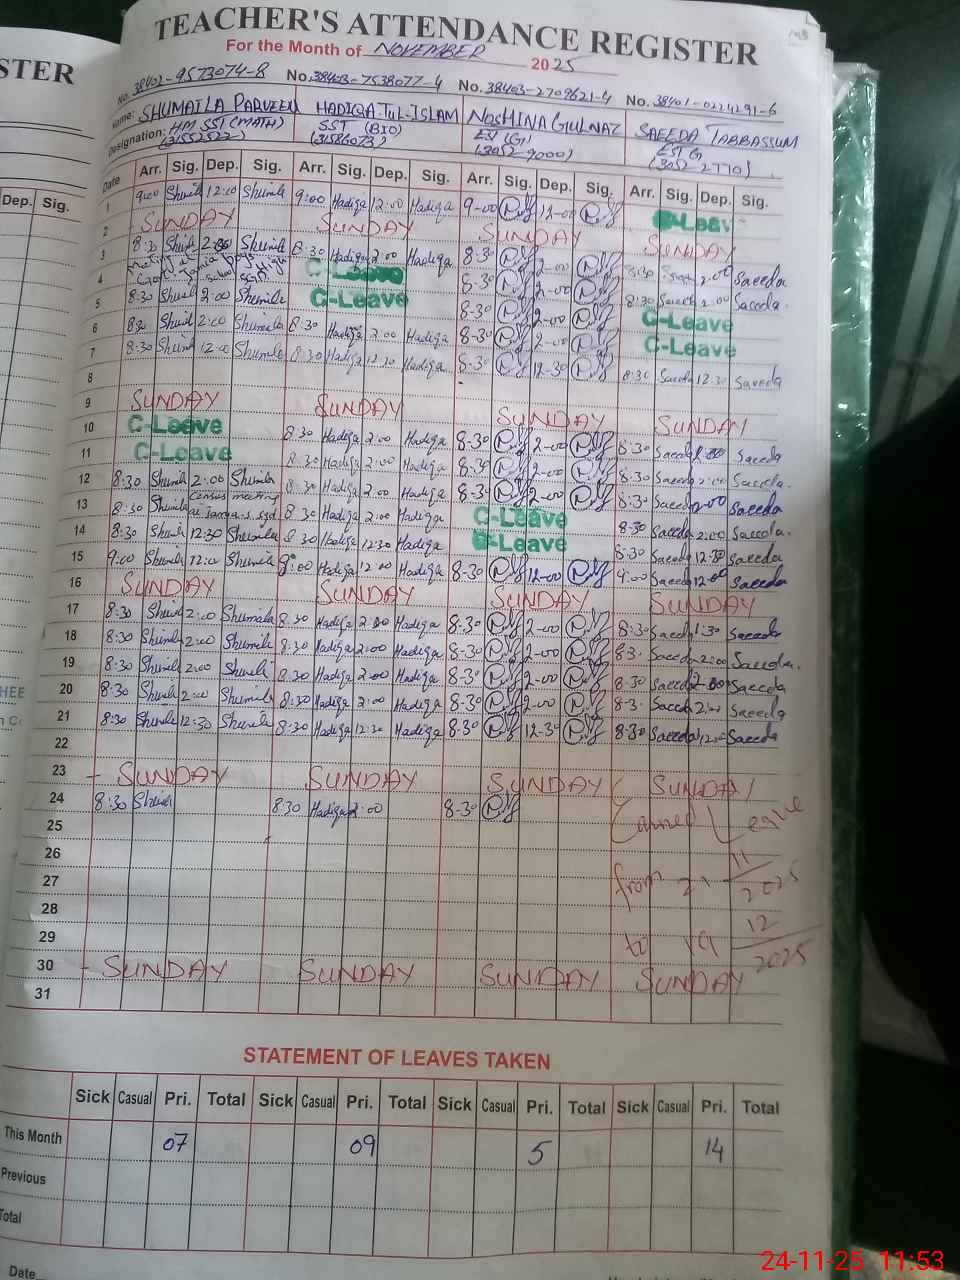 STER
TEACHER'S ATTENDANCE REGISTER
For the Month of NOVEMBER 2025
No. 38402-9573074-8 No. 38403-7538077-4 No. 38403-2709621-4 No. 38401-0224291-6
Name: SHUMAILA PARVEEN HADIQA-TUL-ISLAM NOSHINA GULNAZ SAEEDA TABBASSUM
Designation: HM SST (MATH) SST (BIO) EST (G) EST G
(31552522) (31586073) (3052-9000) (3052-2770)
Dep. Sig.
Date Arr. Sig. Dep. Sig. Arr. Sig. Dep. Sig. Arr. Sig. Dep. Sig. Arr. Sig. Dep. Sig.
1 9:00 12:00 9:00 Hadiqa 12:00 Hadiqa 9-00 12-00 C-Leave
2 SUNDAY SUNDAY SUNDAY SUNDAY
3 8:30 2:00 8:30 Hadiqa 2:00 Hadiqa 8-30 2-00 8:30 2:00 Saeeda
4 C-Leave 8-30 2-00 8:30 Saeeda 2:00 Saeeda.
5 8:30 2:00 C-Leave 8-30 2-00 C-Leave
6 8:30 2:00 8:30 Hadiqa 2:00 Hadiqa 8-30 2-00 C-Leave
7 8:30 12:00 8:30 Hadiqa 12:30 Hadiqa 8-30 12-30 8:30 Saeeda 12:30 Saeeda
8
9 SUNDAY SUNDAY SUNDAY SUNDAY
10 C-Leave 8:30 Hadiqa 2:00 Hadiqa 8-30 2-00 8:30 Saeeda 2:00 Saeeda
11 C-Leave 8:30 Hadiqa 2:00 Hadiqa 8-30 2-00 8:30 Saeeda 2:00 Saeeda.
12 8:30 2:00 8:30 Hadiqa 2:00 Hadiqa 8-30 2-00 8:30 Saeeda 2:00 Saeeda
13 8:30 census meeting 8:30 Hadiqa 2:00 Hadiqa C-Leave 8:30 Saeeda 2:00 Saeeda.
14 8:30 12:30 8:30 Hadiqa 12:30 Hadiqa C-Leave 8:30 Saeeda 12:30 Saeeda
15 9:00 12:00 9:00 Hadiqa 12:00 Hadiqa 8-30 12-00 9:00 Saeeda 12:00 Saeeda
16 SUNDAY SUNDAY SUNDAY SUNDAY
17 8:30 2:00 8:30 Hadiqa 2:00 Hadiqa 8-30 2-00 8:30 Saeeda 1:30 Saeeda
18 8:30 2:00 8:30 Hadiqa 2:00 Hadiqa 8-30 2-00 8:3. Saeeda 2:00 Saeeda.
19 8:30 2:00 8:30 Hadiqa 2:00 Hadiqa 8-30 2-00 8:30 Saeeda 2:00 Saeeda
20 8:30 2:00 8:30 Hadiqa 2:00 Hadiqa 8-30 2-00 8:3. Saeeda 2:00 Saeeda
21 8:30 12:30 8:30 Hadiqa 12:30 Hadiqa 8-30 12-30 8:30 Saeeda Saeeda
22
23 - SUNDAY SUNDAY SUNDAY SUNDAY
24 8:30 8:30 Hadiqa 2:00 8-30
Earned Leave
25
26
27 from 11 2025
28
29 to 19 12 2025
30 - SUNDAY SUNDAY SUNDAY SUNDAY
31
STATEMENT OF LEAVES TAKEN
Sick Casual Pri. Total Sick Casual Pri. Total Sick Casual Pri. Total Sick Casual Pri. Total
This Month 07 09 5 14
Previous
Total
Date
24-11-25 11:53